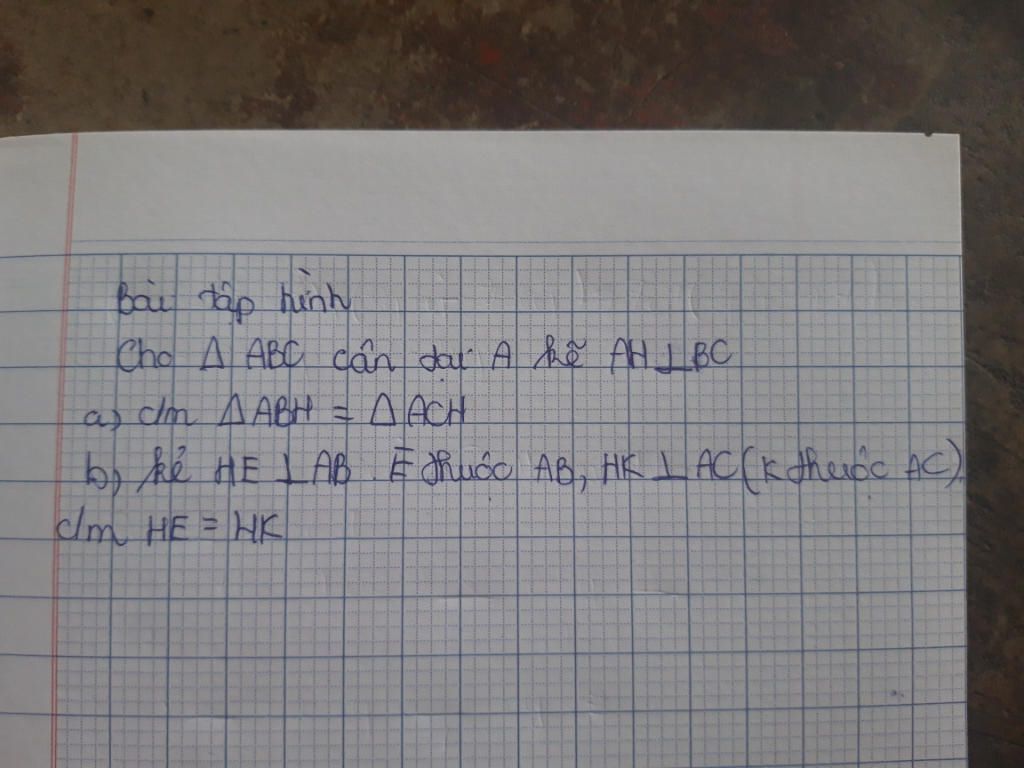 Bài tập hình
Cho Δ ABC cân tại A kẻ AH⊥BC
a) c/m ΔABH = ΔACH
b) kẻ HE ⊥ AB. E thuộc AB, HK ⊥ AC (K thuộc AC).
c/m HE = HK